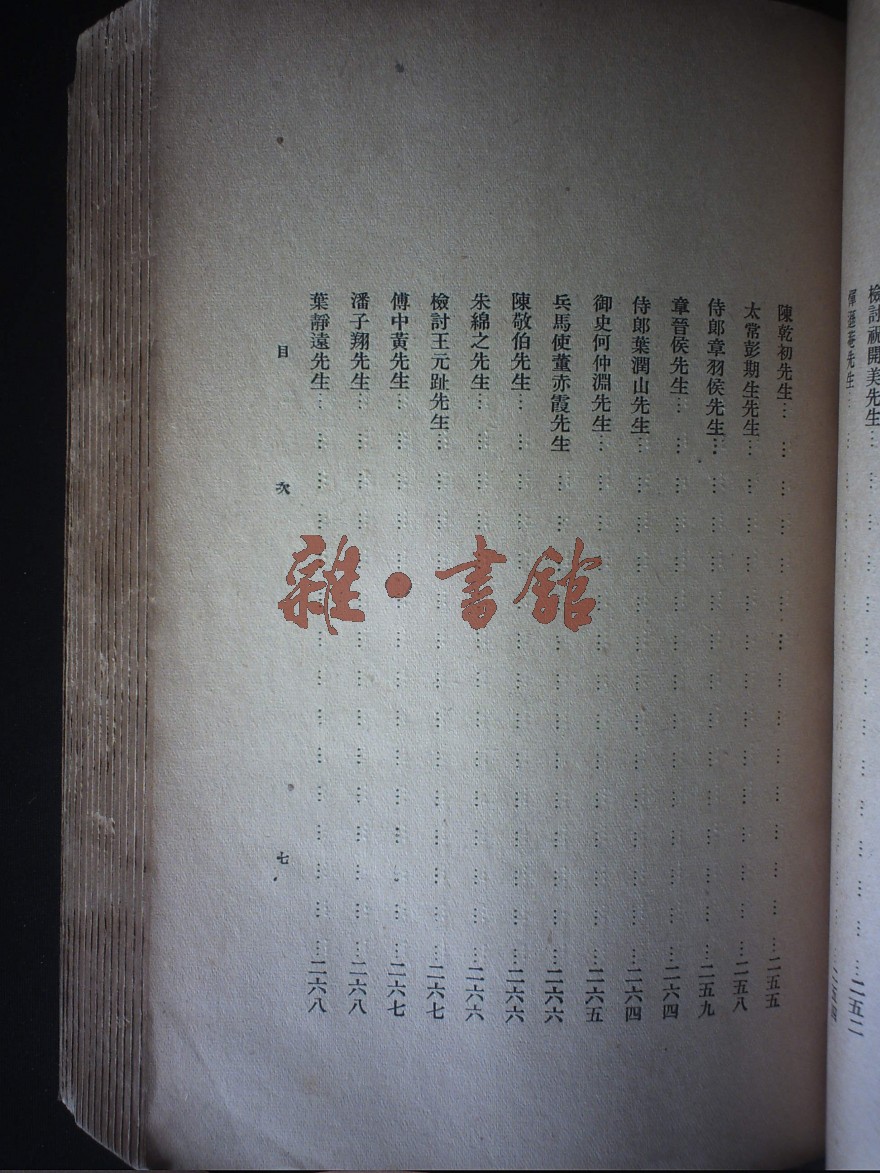 檢討祝開美先生……二五二
惲遜菴先生……
陳乾初先生……二五五
太常彭期生先生……二五八
侍郎章羽侯先生……二五九
章晉侯先生……二六四
侍郎葉潤山先生……二六四
御史何仲淵先生……二六五
兵馬使董赤霞先生……二六六
陳敬伯先生……二六六
朱綿之先生……二六六
檢討王元趾先生……二六七
傅中黃先生……二六七
潘子翔先生……二六八
葉靜遠先生……二六八
目次 七
雜·書館